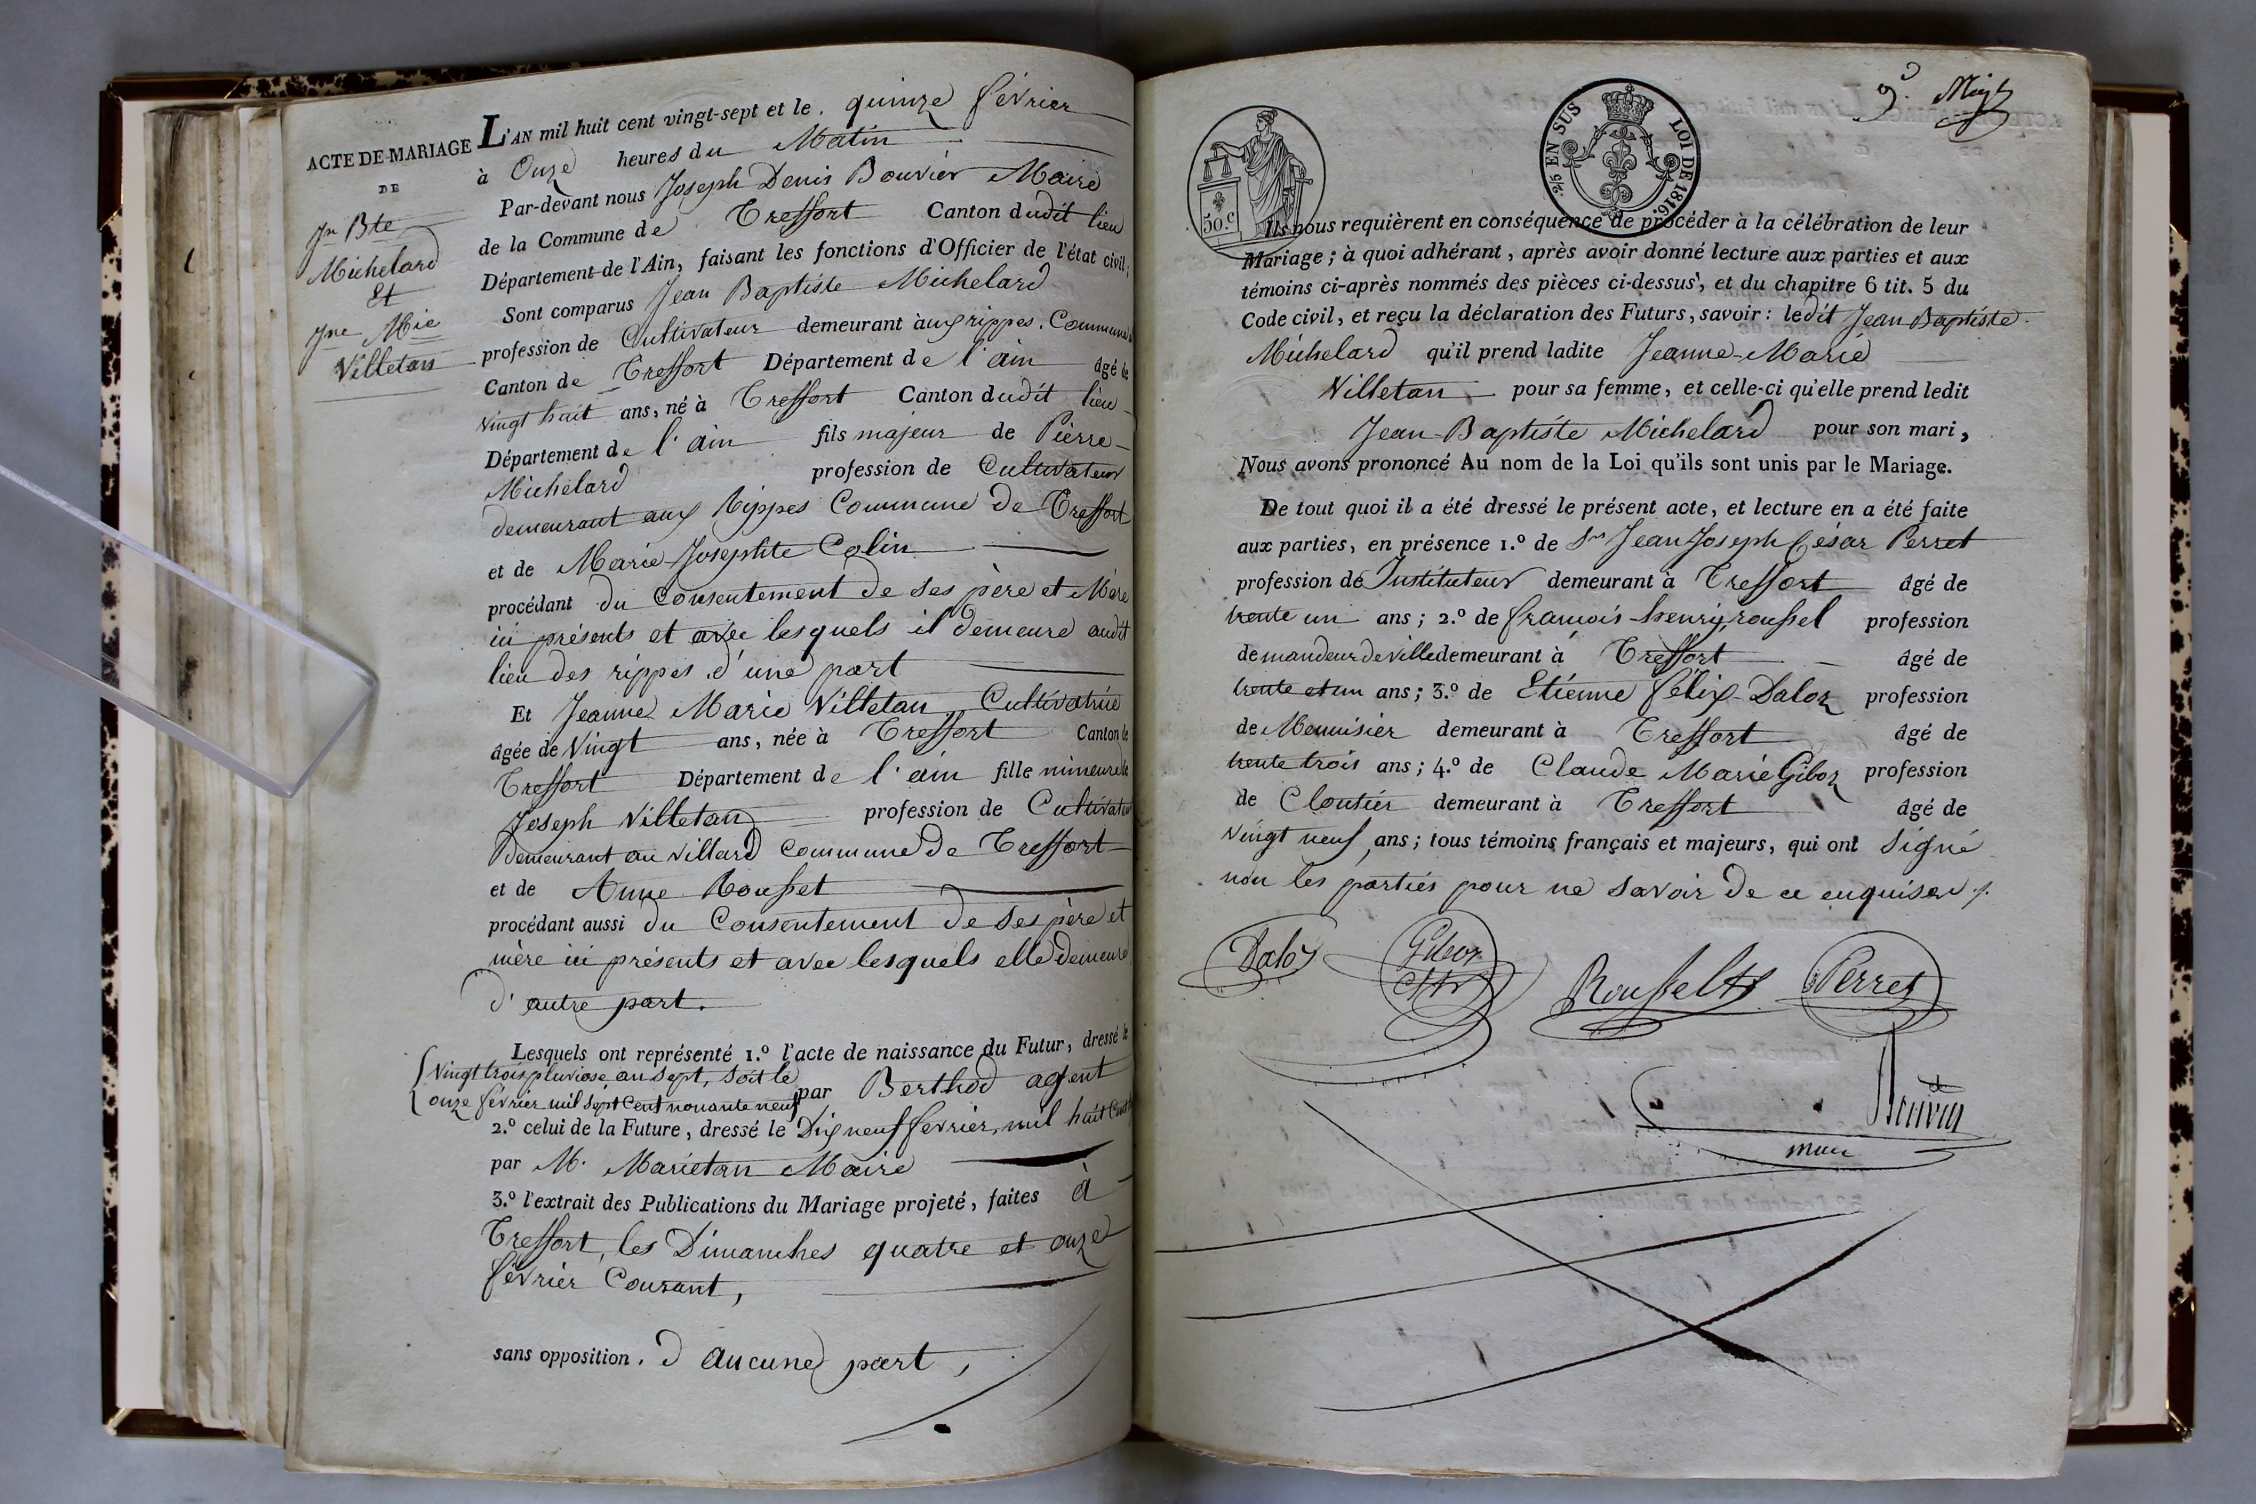 ACTE DE MARIAGE
DE
Jn Bte
Michelard
Et
Jne Mie
Villetan
L'AN mil huit cent vingt-sept et le quinze février
à Onze heures du Matin
Par-devant nous Joseph Denis Bouvier Maire
de la Commune de Treffort Canton dudit lieu
Département de l'Ain, faisant les fonctions d'Officier de l'état civil,
Sont comparus Jean Baptiste Michelard
profession de Cultivateur demeurant aux rippes, Commune
Canton de Treffort Département de l'ain âgé de
vingt huit ans, né à Treffort Canton dudit lieu
Département de l'ain fils majeur de Pierre
Michelard profession de Cultivateur
demeurant aux Rippes Commune de Treffort
et de Marie Josephte Colin
procédant du Consentement de ses père et Mère
ici présents et avec lesquels il demeure audit
lieu des rippes d'une part
Et Jeanne Marie Villetan Cultivatrice
âgée de Vingt ans, née à Treffort Canton de
Treffort Département de l'ain fille mineure de
Joseph Villetan profession de Cultivateur
demeurant au villard Commune de Treffort
et de Anne Rousset
procédant aussi du Consentement de ses père et
mère ici présents et avec lesquels elle demeure
d'autre part.
Lesquels ont représenté 1.° l'acte de naissance du Futur, dressé le
vingt trois pluviose an sept, soit le
onze février mil sept Cent nonante neuf par Berthod agent
2.° celui de la Future, dressé le Dix neuf février, mil huit Cent
par M. Marietan Maire
3.° l'extrait des Publications du Mariage projeté, faites à
Treffort, les Dimanches quatre et onze
février Courant,
sans opposition. d'aucune part,
50.c
2/5 EN SUS LOI DE 1816.
Ils nous requièrent en conséquence de procéder à la célébration de leur
Mariage ; à quoi adhérant, après avoir donné lecture aux parties et aux
témoins ci-après nommés des pièces ci-dessus, et du chapitre 6 tit. 5 du
Code civil, et reçu la déclaration des Futurs, savoir : ledit Jean Baptiste
Michelard qu'il prend ladite Jeanne-Marie
Villetan pour sa femme, et celle-ci qu'elle prend ledit
Jean-Baptiste Michelard pour son mari,
Nous avons prononcé Au nom de la Loi qu'ils sont unis par le Mariage.
De tout quoi il a été dressé le présent acte, et lecture en a été faite
aux parties, en présence 1.° de Sr Jean Joseph César Perret
profession de Instituteur demeurant à Treffort âgé de
trente un ans ; 2.° de françois henry roussel profession
de mandeur de ville demeurant à Treffort âgé de
trente et un ans ; 3.° de Etienne félix Daloz profession
de Menuisier demeurant à Treffort âgé de
trente trois ans ; 4.° de Claude Marie Giboz profession
de Cloutier demeurant à Treffort âgé de
vingt neuf ans ; tous témoins français et majeurs, qui ont signé
non les parties pour ne savoir de ce enquises
Daloz Giboz Roussel Perret
Bouvier
maire